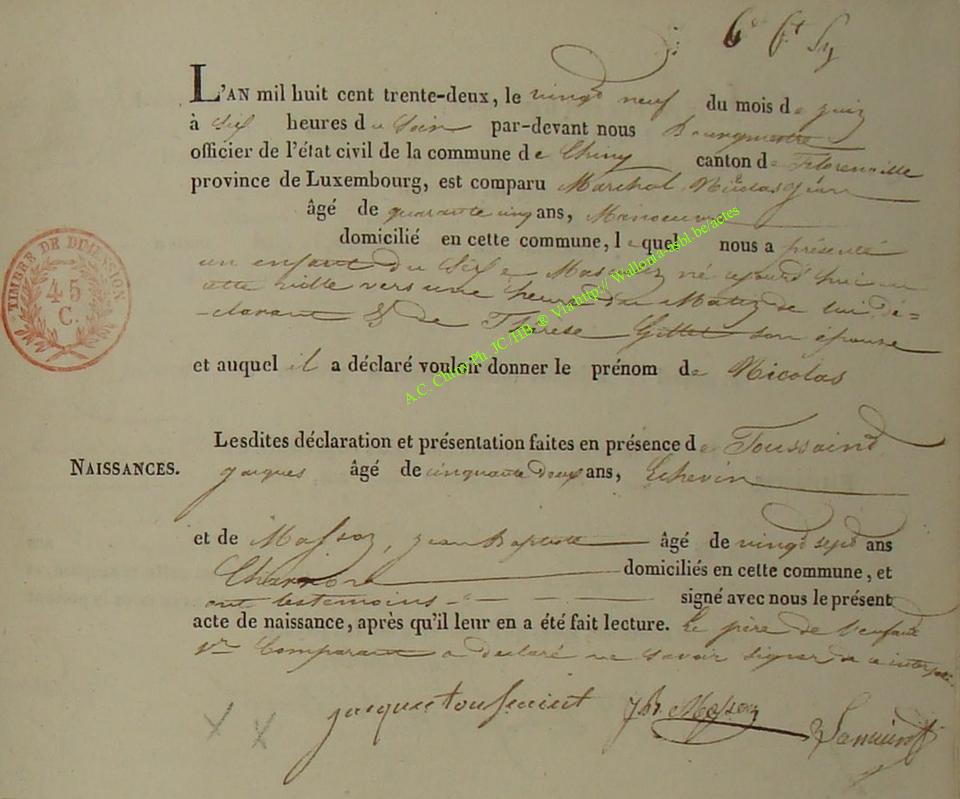 6e ft
L'AN mil huit cent trente-deux, le vingt neuf du mois de juin
à six heures du Soir par-devant nous Bourgmestre
officier de l'état civil de la commune de Chiny canton de Florenville
province de Luxembourg, est comparu Maréchal Nicolas Jean
âgé de quarante cinq ans, Manoeuvre
domicilié en cette commune, lequel nous a présenté
un enfant du Sexe Masculin né aujourd'hui en
cette ville vers une heure du Matin de lui dé=
-clarant & de Thérèse Gillet son épouse
et auquel il a déclaré vouloir donner le prénom de Nicolas
Lesdites déclaration et présentation faites en présence de Toussaint
NAISSANCES.
Jacques âgé de cinquante deux ans, Echevin
et de Masson, Jean Baptiste âgé de vingt sept ans
Charron domiciliés en cette commune, et
ont les temoins signé avec nous le présent
acte de naissance, après qu'il leur en a été fait lecture. Le père de l'enfant
Comparant a déclaré ne savoir signer de ce interpellé
jacques toussaint JB Masson
TIMBRE DE DIMENSION
45
C.
A.C. Chiny Ph JC/HB ® Via http:// Wallonia-asbl.be/actes